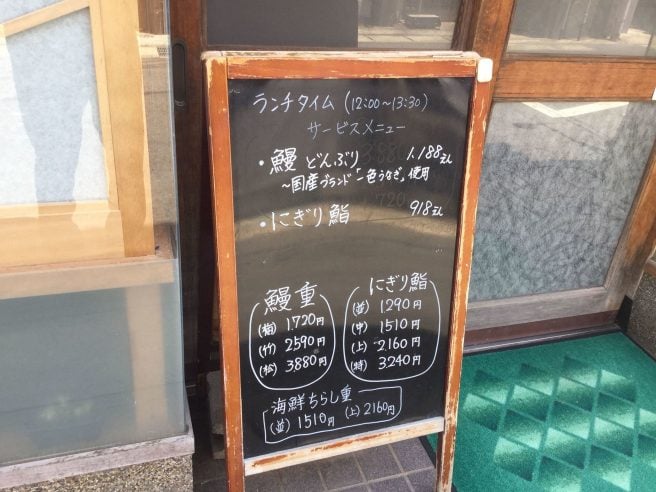 ランチタイム (12:00~13:30)
サービスメニュー
・鰻 どんぶり 1,188えん
~国産ブランド「一色うなぎ」使用
・にぎり鮨 918えん
鰻重
(梅) 1,720円
(竹) 2590円
(松) 3,880円
にぎり鮨
(並) 1290円
(中) 1510円
(上) 2160円
(特) 3,240円
海鮮ちらし重
(並) 1510円 (上) 2160円